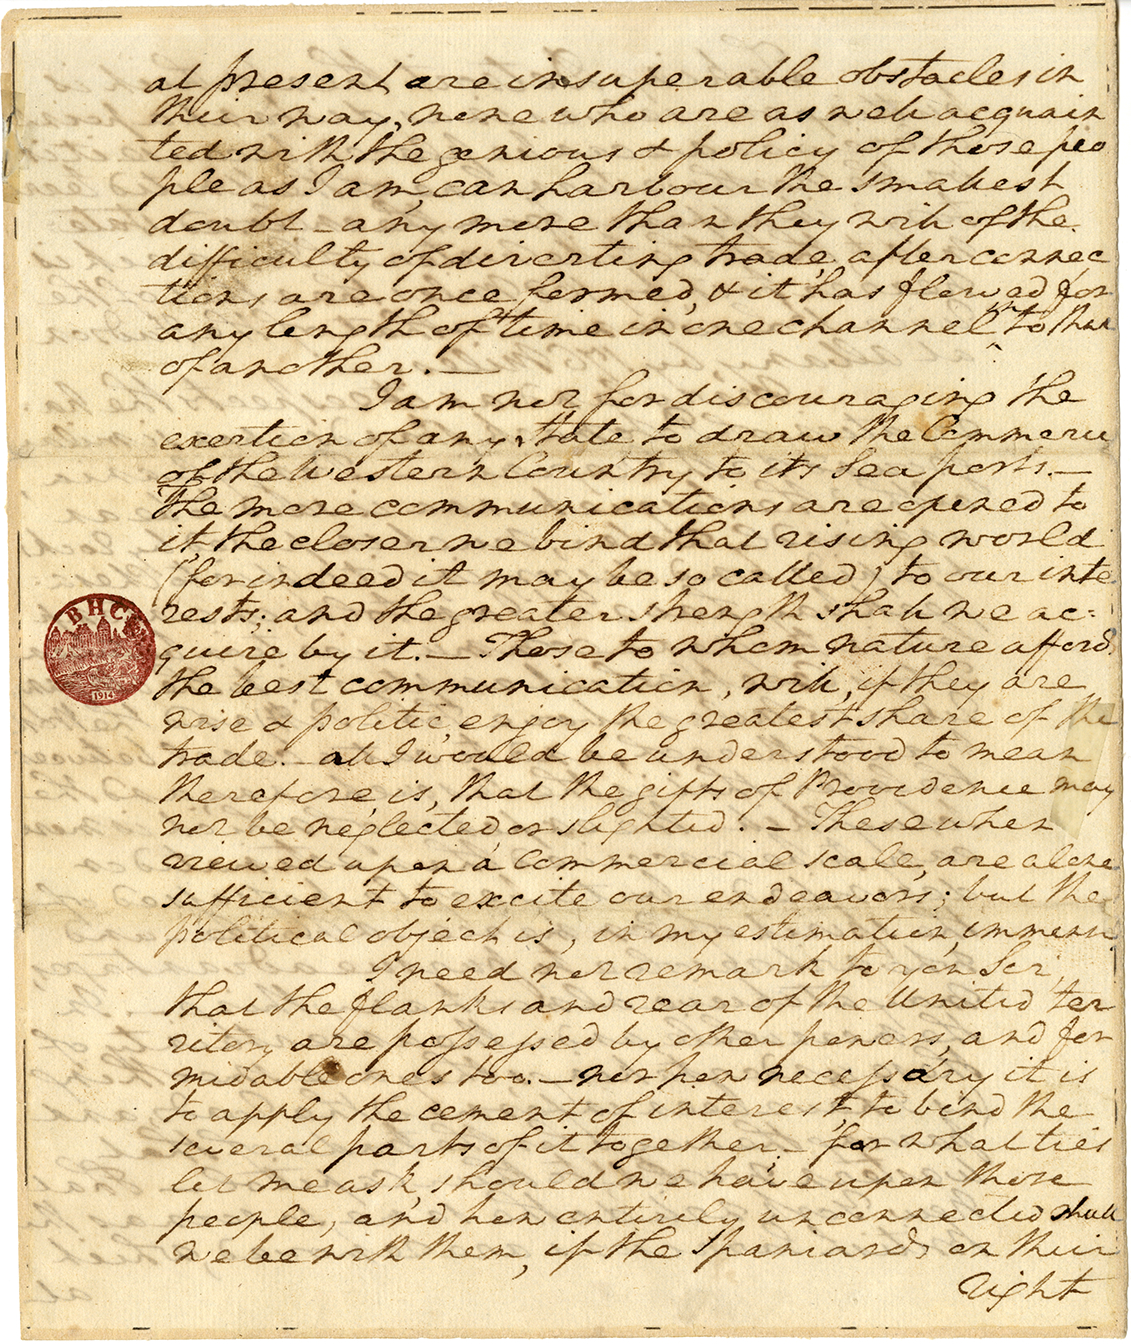 at present are insuperable obstacles in
their way, none who are as well acquain
ted with the genious & policy of those peo
ple as I am, can harbour the smallest
doubt – any more than they will of the
difficulty of diverting trade, after connec
tions are once formed, & it has flowed for
any length of time in one channel, into that
of another. —
I am not for discouraging the
exertion of any State to draw the Commerce
of the Western Country to its Sea ports. —
The more communications are opened to
it, the closer we bind that rising world
(for indeed it may be so called) to our inte
rests; and the greater strength shall we ac=
quire by it. — Those to whom nature affords
the best communication, will, if they are
wise & politic, enjoy the greatest share of the
trade. – all I would be understood to mean
therefore is, that the gifts of Providence may
not be neglected or slighted. – These when
viewed upon a Commercial scale, are alone
sufficient to excite our endeavors; but the
political object is, in my estimation, immense
I need not remark to you Sir,
that the flanks and rear of the United ter
ritory are possessed by other powers, and for
midable ones too. – nor how necessary it is
to apply the cement of interest to bind the
several parts of it together – for what ties
let me ask, should we have upon those
people, and how entirely unconnected shall
we be with them, if the Spaniards on their
right
BHC
1914